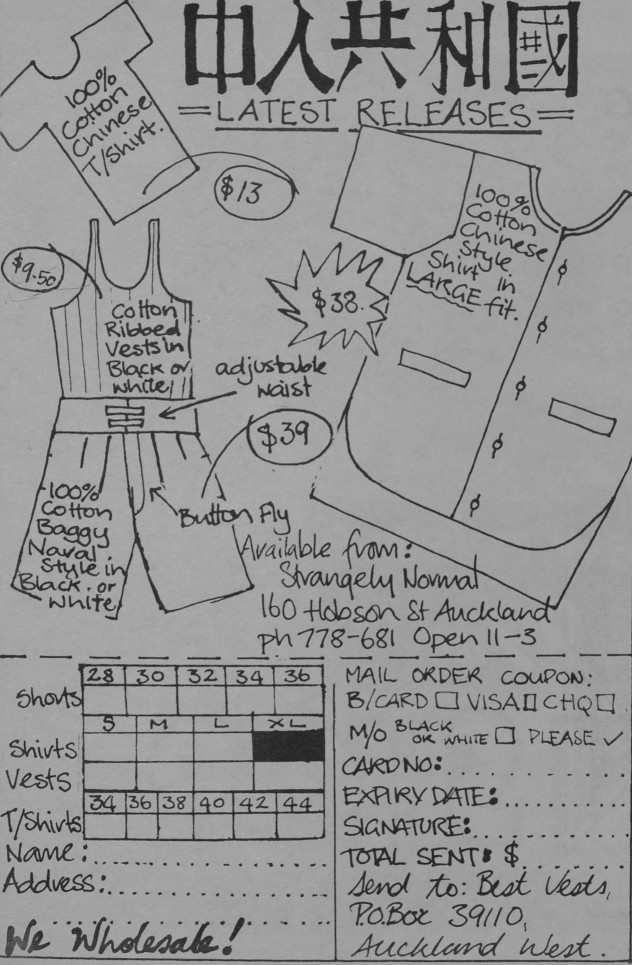 中人共和國
=LATEST RELEASES=
100%
Cotton
Chinese
T/Shirt.
$13
100%
Cotton
Chinese
Style
Shirt in
LARGE fit.
$38.
$9.50
Cotton
Ribbed
Vests in
Black or
White
adjustable
waist
$39
Button Fly
100%
Cotton
Baggy
Naval
Style in
Black or
White
Available from:
Strangely Normal
160 Hobson St Auckland
ph 778-681 Open 11-3
28 30 32 34 36
Shorts
S M L XL
Shirts
Vests
34 36 38 40 42 44
T/Shirts
Name:
Address:
We Wholesale!
MAIL ORDER COUPON:
B/CARD □ VISA □ CHQ □
M/O BLACK OR WHITE □ PLEASE ✓
CARD NO:
EXPIRY DATE:
SIGNATURE:
TOTAL SENT: $
Send to: Best Vests,
P.O.Box 39110,
Auckland West.